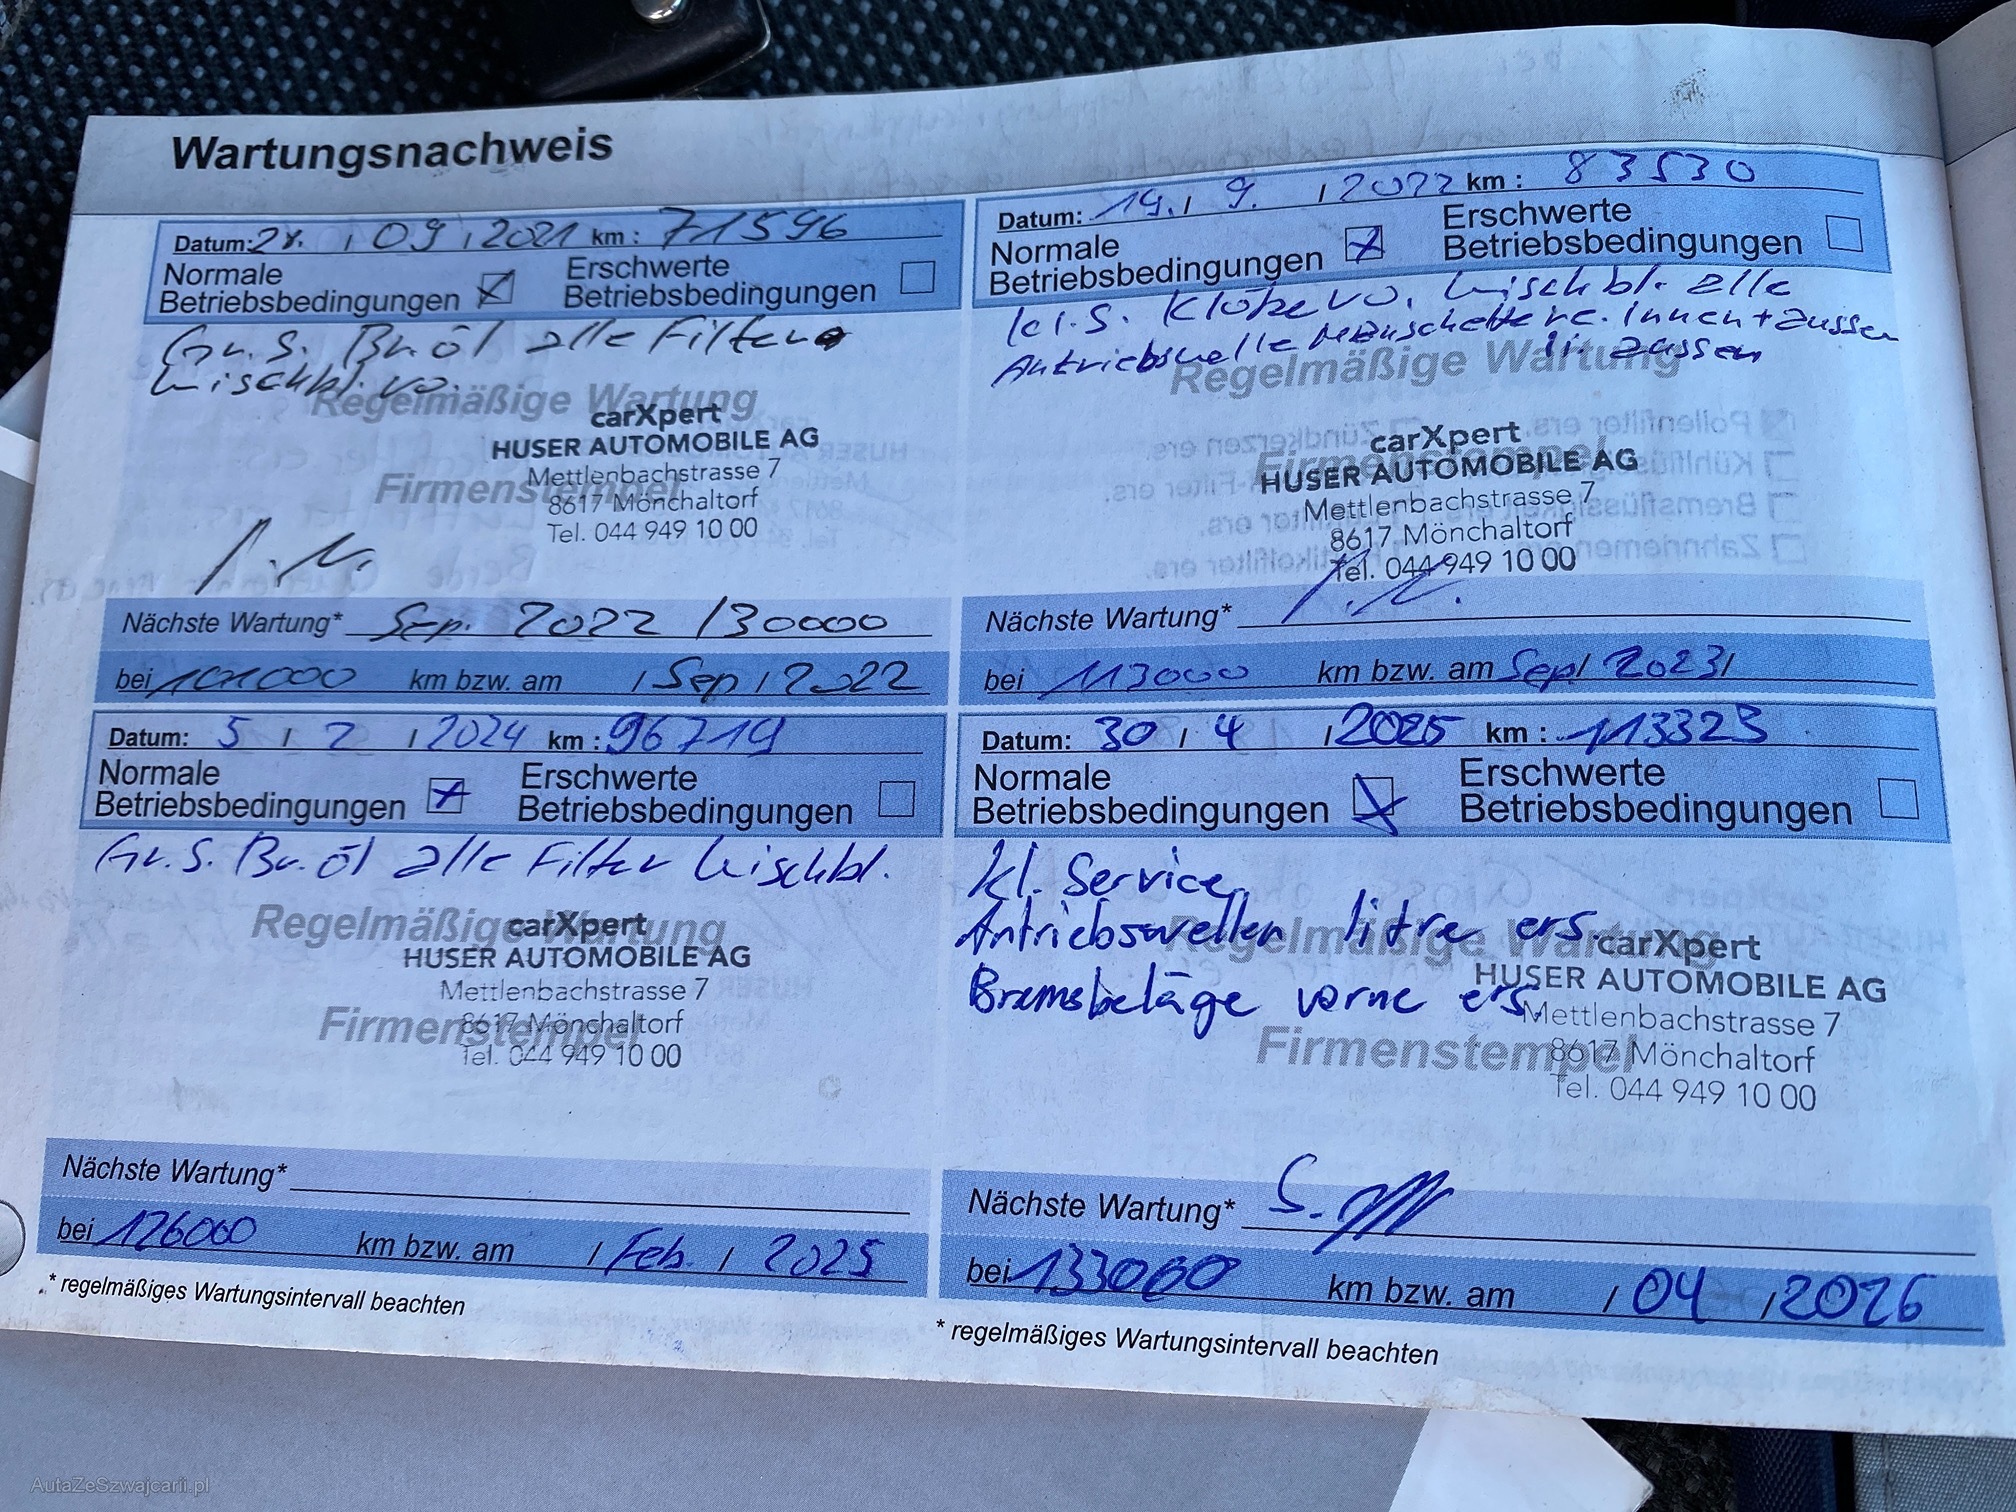 Wartungsnachweis
Datum: 28. / 09 / 2021 km: 71596
Normale
Betriebsbedingungen
Erschwerte
Betriebsbedingungen
Gr. S. Br. öl alle Filter
Wischbl. vo.
Regelmäßige Wartung
carXpert
HUSER AUTOMOBILE AG
Mettlenbachstrasse 7
Firmenstempel
8617 Mönchaltorf
Tel. 044 949 10 00
Nächste Wartung* Sep. 2022 / 30000
bei 101000 km bzw. am / Sep / 2022
Datum: 19. / 9. / 2022 km: 83530
Normale
Betriebsbedingungen
Erschwerte
Betriebsbedingungen
kl. S. Klötze vo. Wischbl. alle
Antriebswelle Manschette re. Innen + aussen
li. aussen
Regelmäßige Wartung
carXpert
Firmenstempel
HUSER AUTOMOBILE AG
Mettlenbachstrasse 7
8617 Mönchaltorf
Tel. 044 949 10 00
Nächste Wartung*
bei 113000 km bzw. am Sep / 2023 /
Datum: 5 / 2 / 2024 km: 96719
Normale
Betriebsbedingungen
Erschwerte
Betriebsbedingungen
Gr. S. Br. öl alle Filter Wischbl.
Regelmäßige Wartung
carXpert
HUSER AUTOMOBILE AG
Mettlenbachstrasse 7
Firmenstempel
8617 Mönchaltorf
Tel. 044 949 10 00
Nächste Wartung*
bei 126000 km bzw. am / Feb. / 2025
* regelmäßiges Wartungsintervall beachten
Datum: 30 / 4 / 2025 km: 113323
Normale
Betriebsbedingungen
Erschwerte
Betriebsbedingungen
kl. Service
Antriebswellen li+re ers.
Regelmäßige Wartung
carXpert
Bremsbeläge vorne ers.
HUSER AUTOMOBILE AG
Mettlenbachstrasse 7
Firmenstempel
8617 Mönchaltorf
Tel. 044 949 10 00
Nächste Wartung*
bei 133000 km bzw. am / 04 / 2026
* regelmäßiges Wartungsintervall beachten
AutaZeSzwajcarii.pl